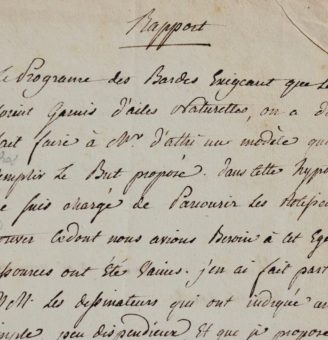 Rapport
Le Programe des Bardes Exigeant que Le
soient Garnis d'ailes Naturelles, on a d
fait faire à Mr. d'athi un modèle que
remplir Le But proposé. dans cette hypo
je suis chargé de Parcourir Les
trouver Cedont nous avions Besoin à cet Ega
ssources ont Eté Vaines. j'en ai fait part
MM. Les dessinateurs qui ont indiqué un
simple peu dispendieux Et que je propose